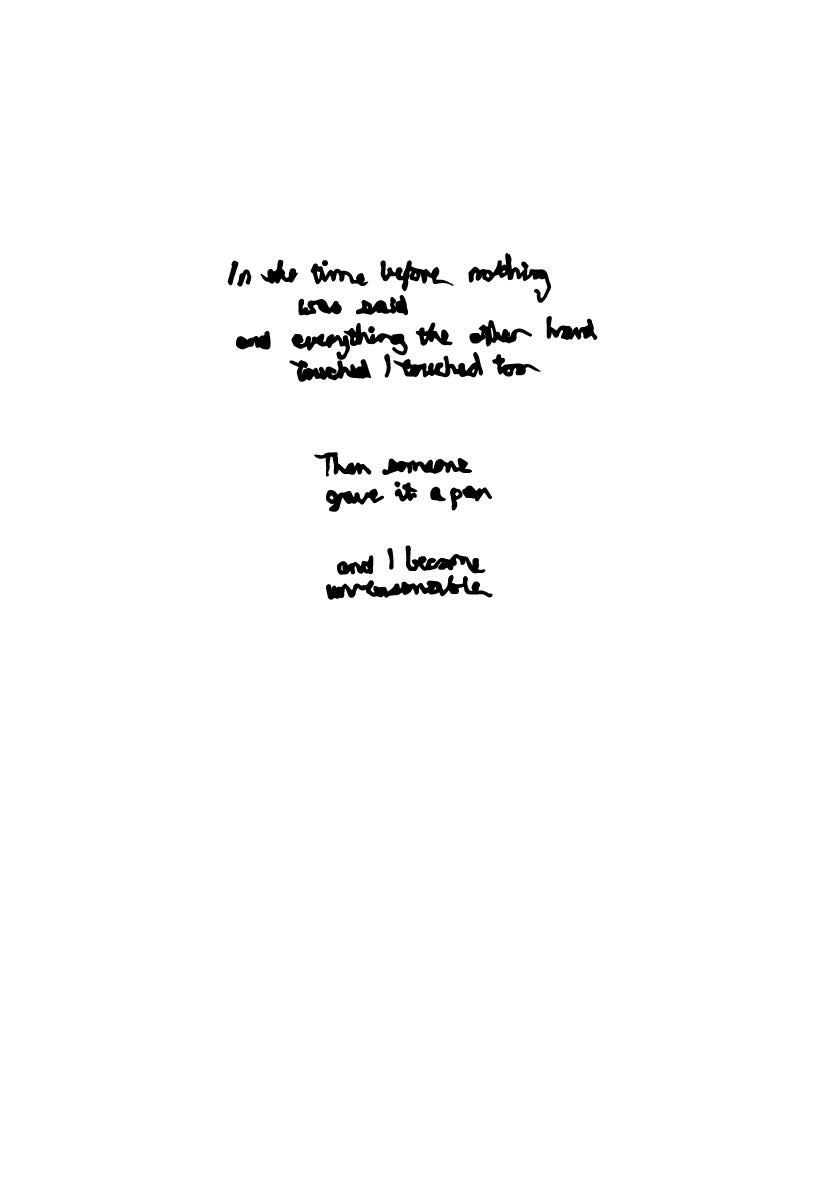 In the time before nothing
was said
and everything the other hand
touched I touched too
Then someone
gave it a pen
and I became
unreasonable